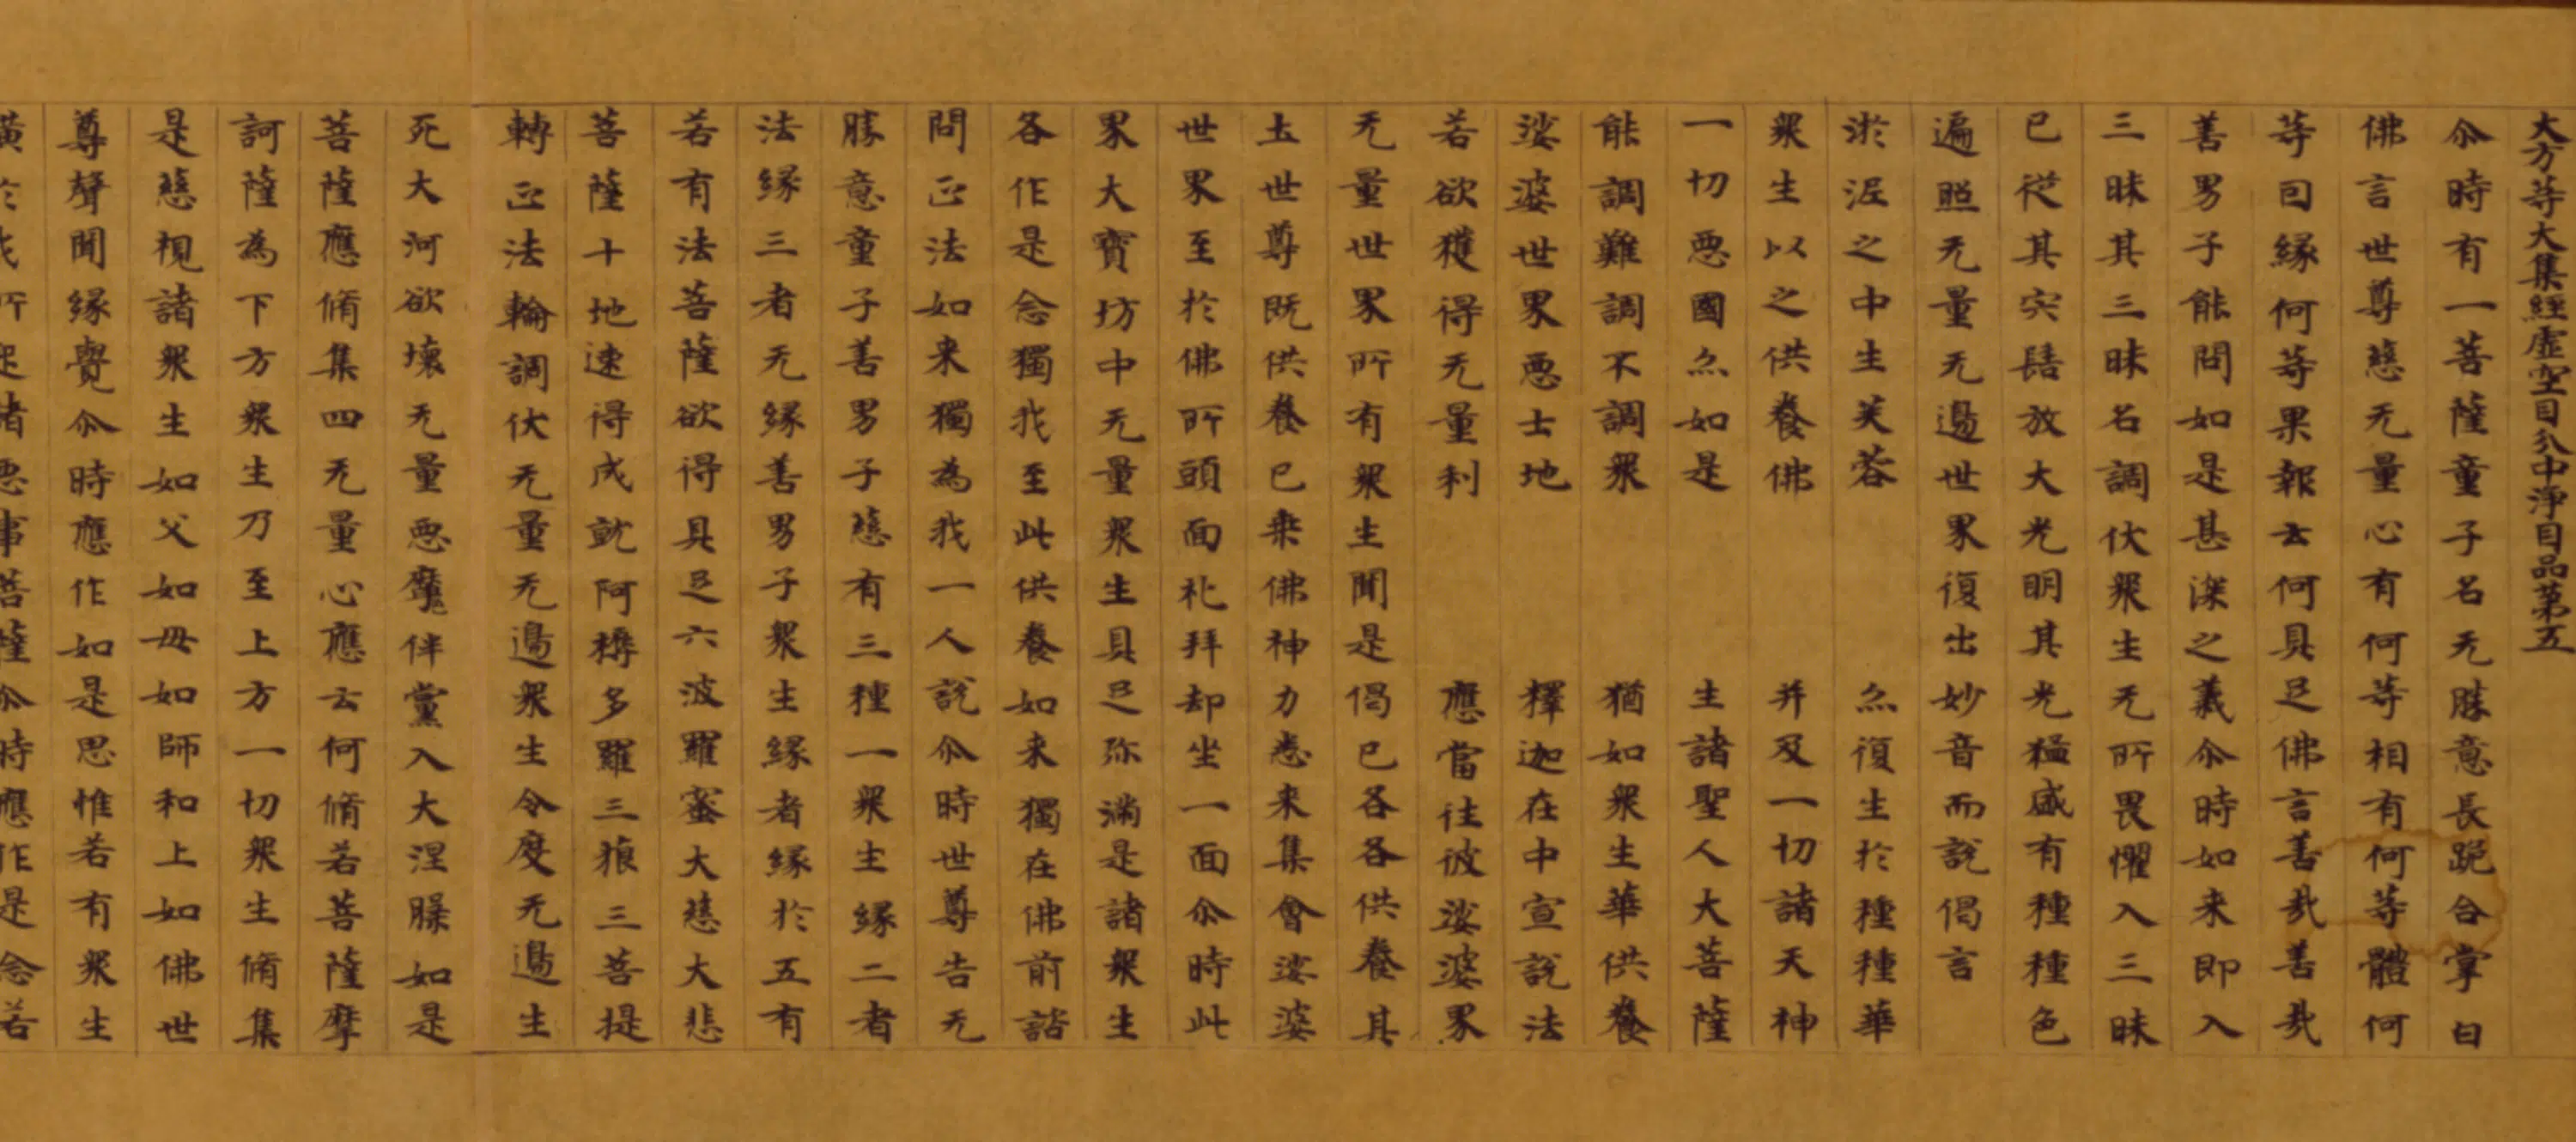 大方等大集經虛空目分中淨目品第五
尒時有一菩薩童子名无勝意長跪合掌白
佛言世尊慈无量心有何等相有何等體何
等囙緣何等果報云何具足佛言善哉善哉
善男子能問如是甚深之義尒時如来即入
三昧其三昧名調伏衆生无所畏懼入三昧
已從其宍髻放大光明其光猛盛有種種色
遍照无量无邊世界復出妙音而說偈言
淤泥之中生芙蓉　亦復生於種種華
衆生以之供養佛　并及一切諸天神
一切惡國亦如是　生諸聖人大菩薩
能調難調不調衆　猶如衆生華供養
娑婆世界惡土地　釋迦在中宣說法
若欲獲得无量利　應當往彼娑婆界
无量世界所有衆生聞是偈已各各供養其
土世尊既供養已乗佛神力悉来集會娑婆
世界至於佛所頭面礼拜却坐一面尒時此
界大寶坊中无量衆生具足弥滿是諸衆生
各作是念獨我至此供養如来獨在佛前諮
問正法如来獨為我一人說尒時世尊告无
勝意童子善男子慈有三種一衆生緣二者
法緣三者无緣善男子衆生緣者緣於五有
若有法菩薩欲得具足六波羅蜜大慈大悲
菩薩十地速得成就阿耨多羅三藐三菩提
轉正法輪調伏无量无邊衆生令度无邊生
死大河欲壞无量惡魔伴黨入大涅槃如是
菩薩應脩集四无量心應云何脩若菩薩摩
訶薩為下方衆生乃至上方一切衆生脩集
是慈視諸衆生如父如母如師和上如佛世
尊聲聞緣覺尒時應作如是思惟若有衆生
橫於我所起諸惡事菩薩尒時應作是念若